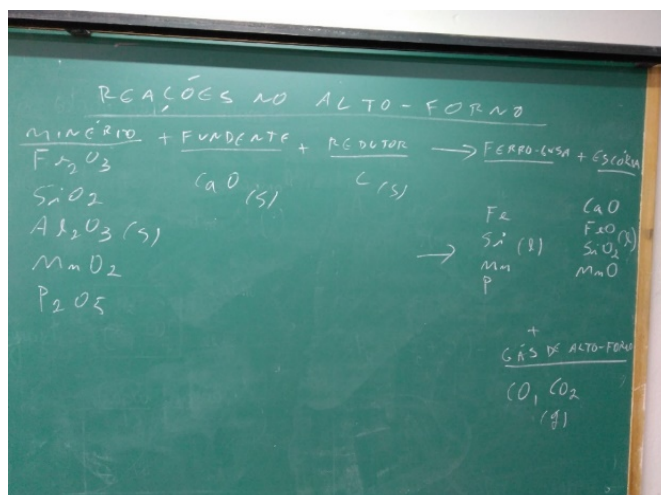 REAÇÕES NO ALTO-FORNO
MINÉRIO + FUNDENTE + REDUTOR → FERRO-GUSA + ESCÓRIA
Fe2O3
CaO (s)
C (s)
SiO2
Al2O3 (s)
MnO2
P2O5
→
Fe
Si (l)
Mn
P
CaO
FeO (l)
SiO2
MnO
+
GÁS DE ALTO-FORNO
CO, CO2
(g)